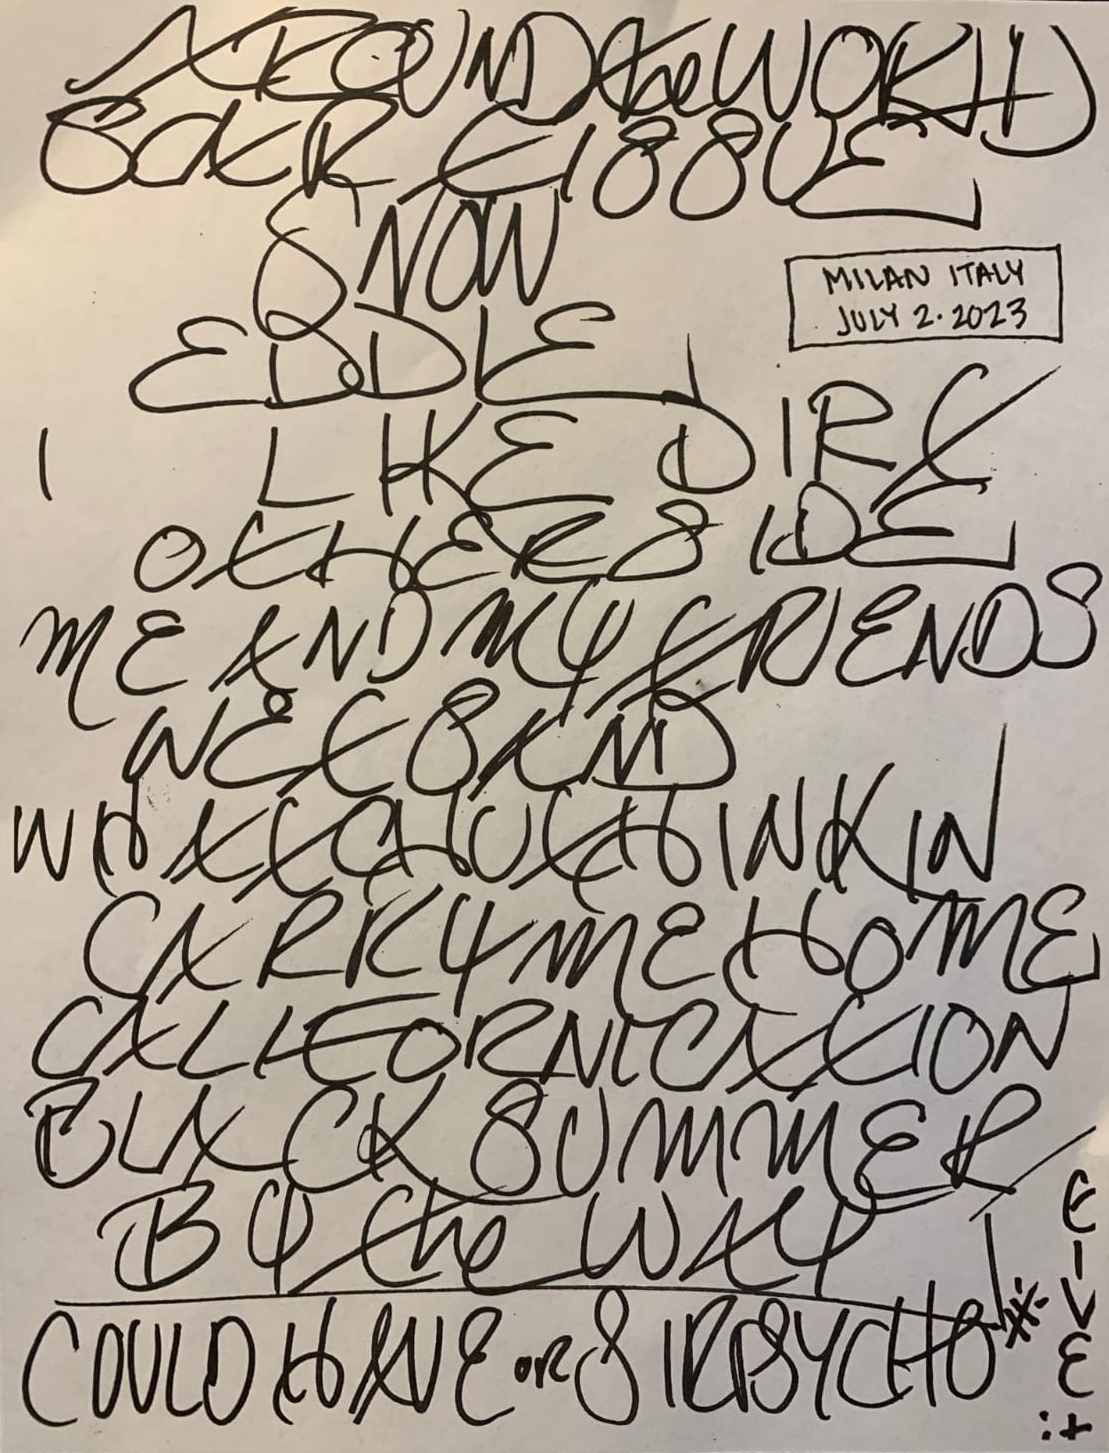 AROUND the WORLD
SCAR TISSUE
SNOW
MILAN ITALY
JULY 2.2023
EDDIE
I LIKE DIRT
OTHERSIDE
ME AND MY FRIENDS
WET SAND
WHATCHU THINKIN
CARRY ME HOME
CALIFORNICATION
BLACK SUMMER
BY the WAY
COULD HAVE OR SIR PSYCHO